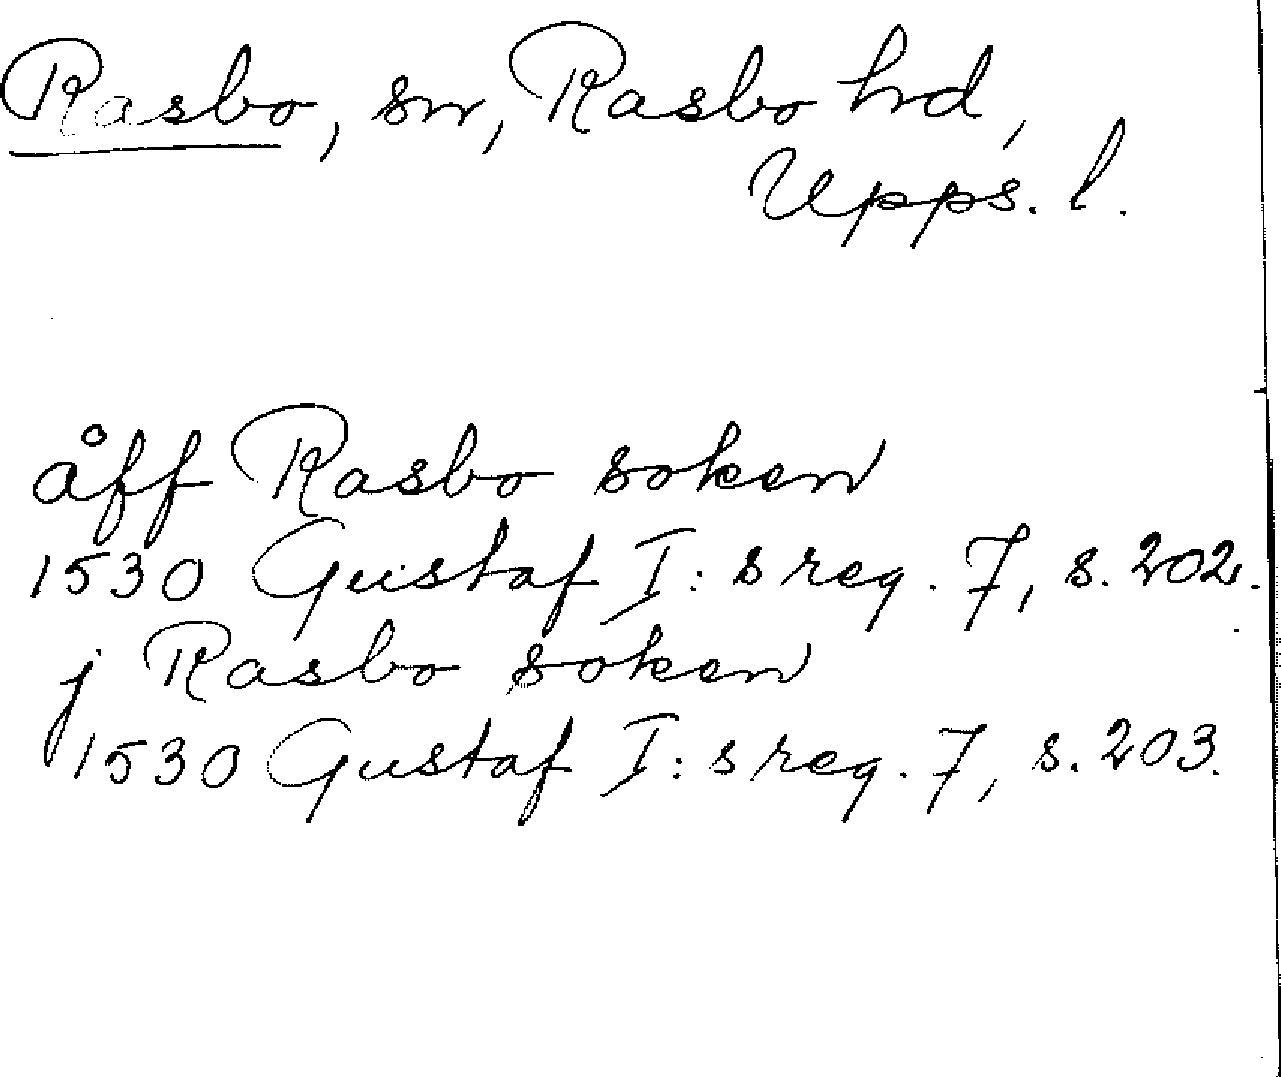 Rasbo, sn, Rasbo hd,
Upps. l.
åff Rasbo soken
1530 Gustaf I: s reg. 7, s. 202.
j Rasbo soken
1530 Gustaf I: s reg. 7, s. 203.